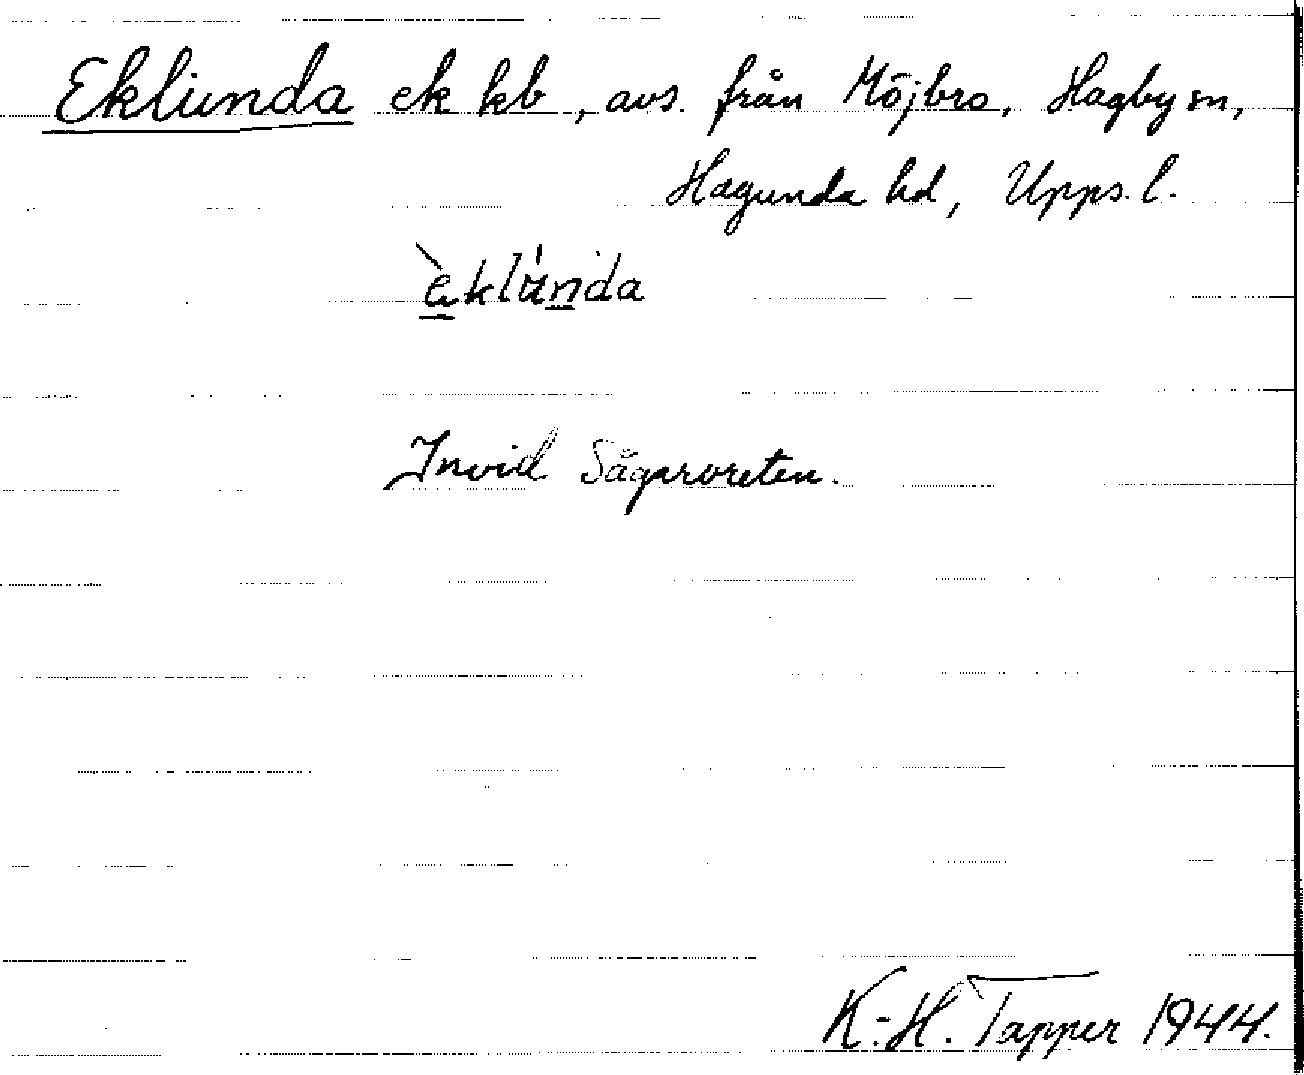 Eklunda ek kb, avs. från Möjbro, Hagby sn,
Hagunda hd, Upps. l.
èklúnda
Invid Sågarvreten.
K.-H. Tapper 1944.